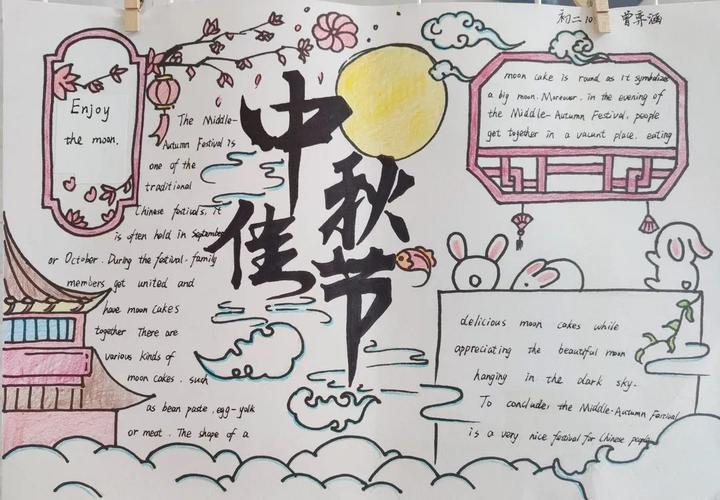 初二10 曾弈涵
Enjoy
the moon.
中秋佳节
The Middle-
Autumn Festival is
one of the
traditional
Chinese festivals, it
is often held in September
or October. During the festival, family
members get united and
have moon cakes
together There are
various kinds of
moon cakes, such
as bean paste, egg-yolk
or meat. The shape of a
moon cake is round as it symbolizes
a big moon. Moreover, in the evening of
the Middle-Autumn Festival, people
get together in a vacant place, eating
delicious moon cakes while
appreciating the beautiful moon
hanging in the dark sky.
To conclude, the Middle-Autumn Festival
is a very nice festival for Chinese people